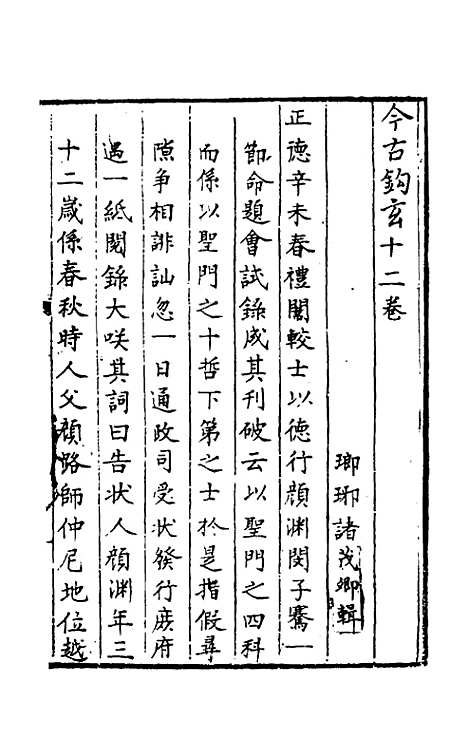 今古鈎玄十二卷
瑯琊諸茂卿輯
正德辛未春禮闈較士以德行顏淵閔子騫一
節命題會試錄成其刊破云以聖門之四科
而係以聖門之十哲下第之士於是指假尋
隙爭相誹訕忽一日通政司受狀發行庻府
遇一紙閱錄大咲其詞曰告狀人顏淵年三
十二嵗係春秋時人父顏路師仲尼地位越